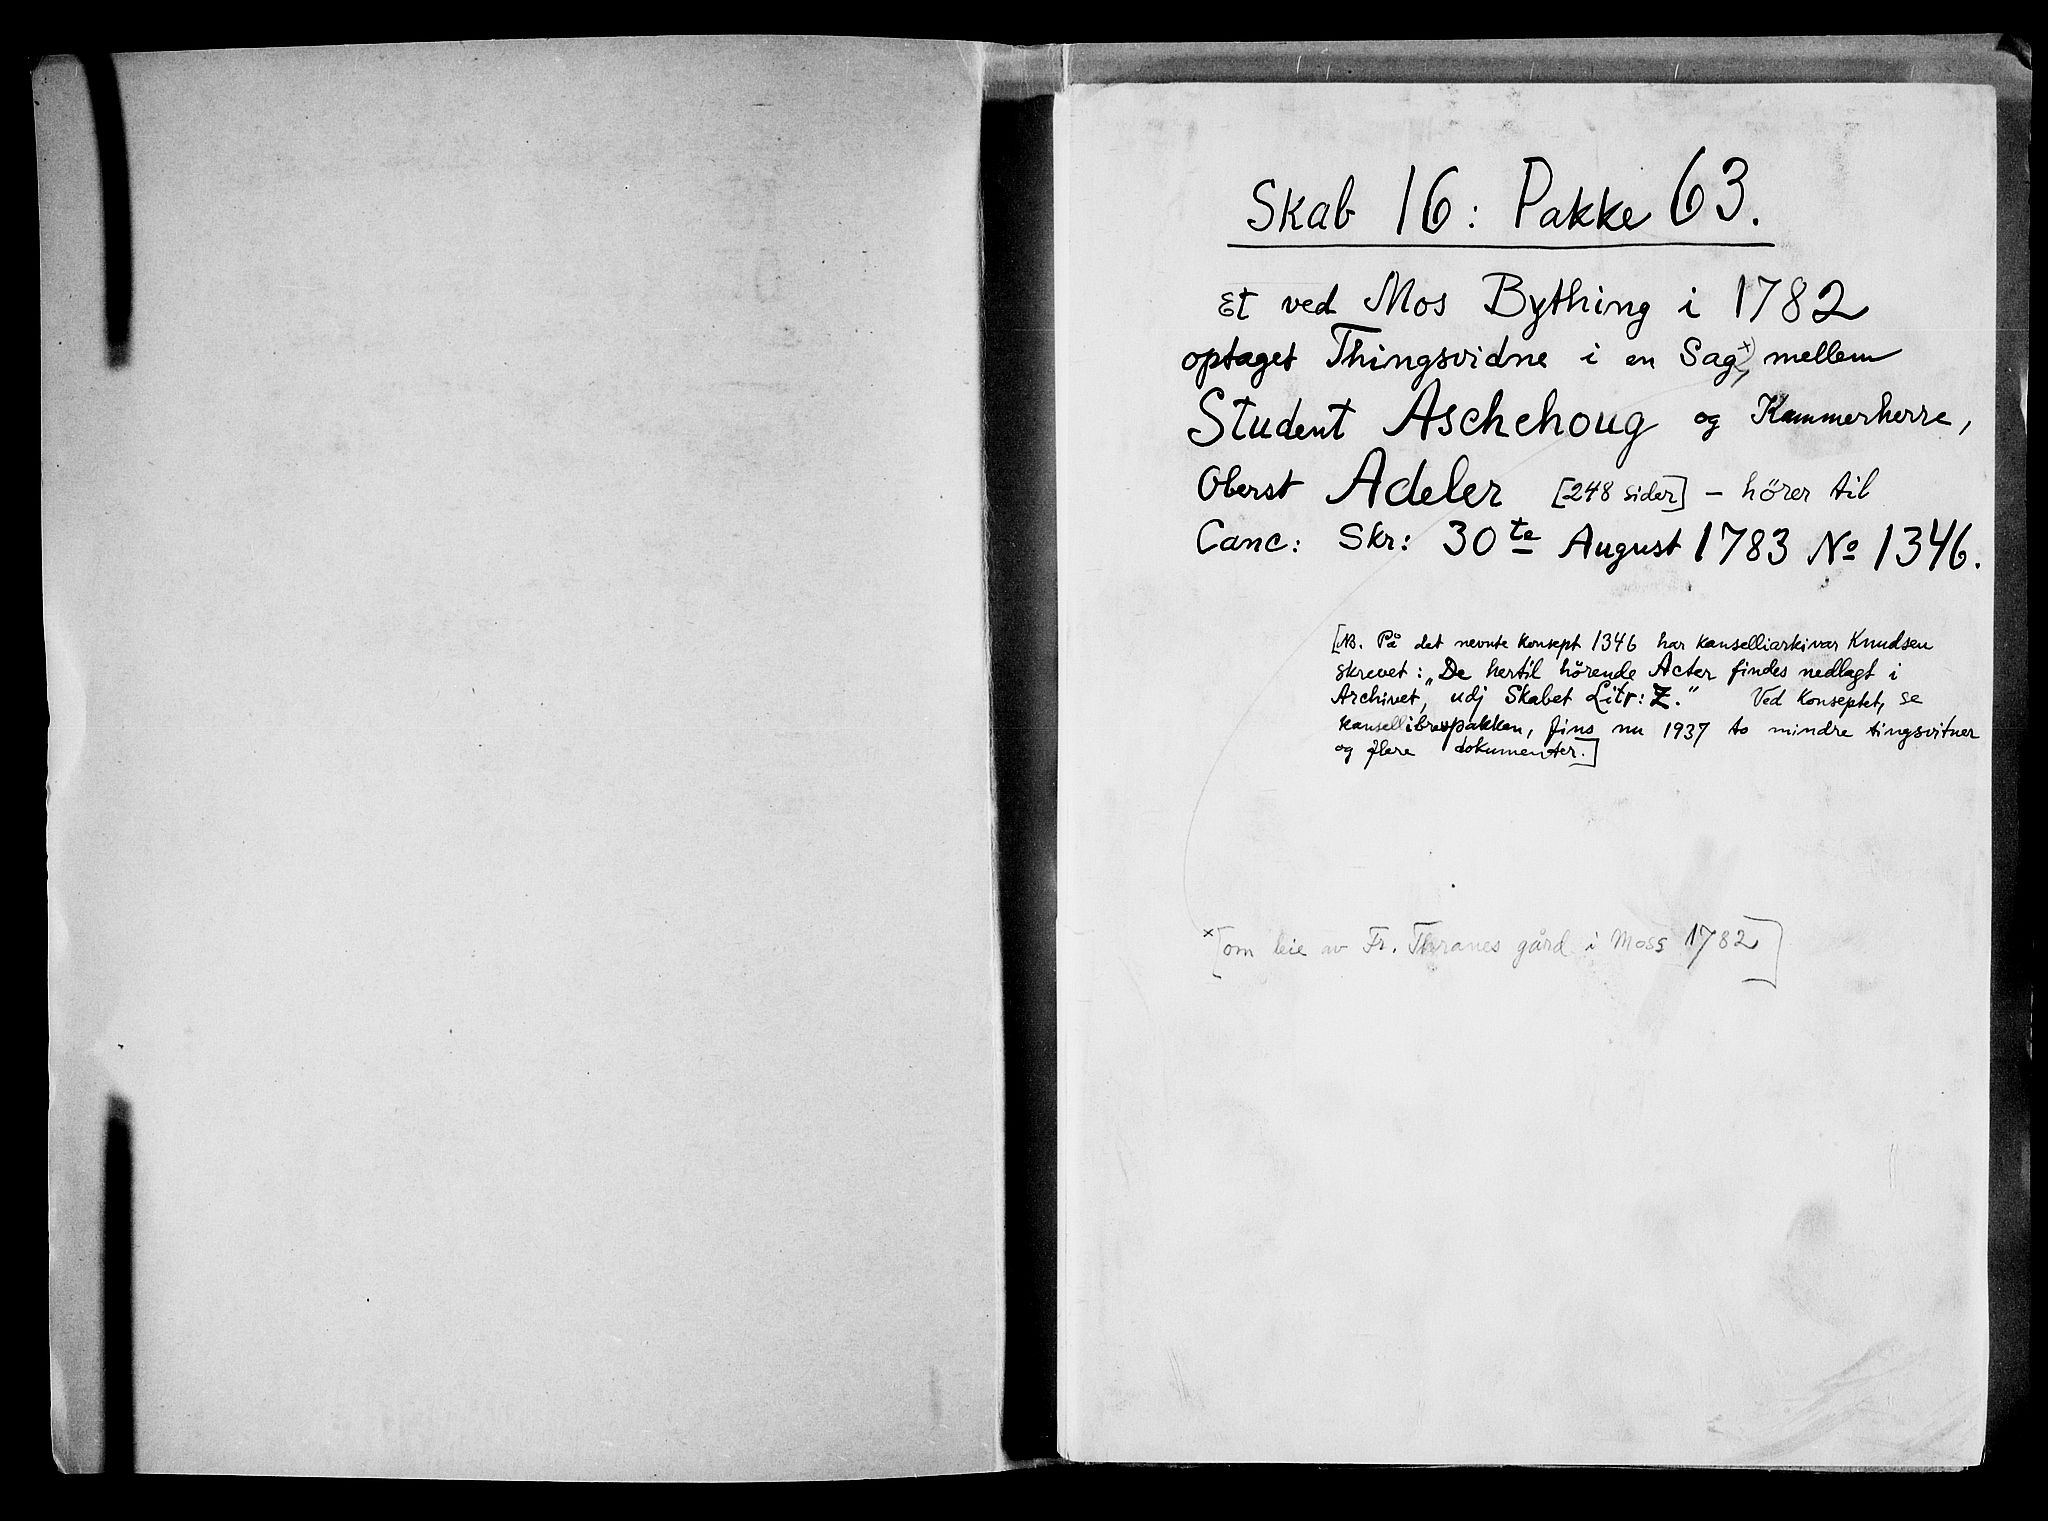 Skab 16: Pakke 63.
Et ved Mos Bything i 1782
optaget Thingsvidne i en Sag x), mellem
Student Aschehoug og Kammerherre,
Oberst Adeler [248 sider] – hörer til
Canc: Skr: 30te August 1783 No 1346.
[NB. På det nevnte konsept 1346 har kanselliarkivar Knudsen
skrevet: „De hertil hörende Acter findes nedlagt i
Archivet, udj Skabet Litr: Z.“ Ved konseptet, se
kansellibrevpakken, fins nu 1937 to mindre tingsvitner
og flere dokumenter.]
x [om leie av Fr. Thranes gård i Moss 1782]